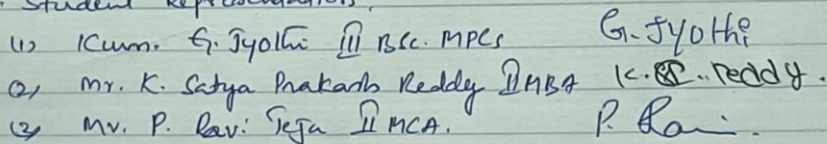 Student Representatives.
(1) Kum. G. Jyothi III BSc. MPCs G. Jyothi
(2) Mr. K. Satya Prakash Reddy II MBA K.SP..reddy.
(3) Mr. P. Ravi Teja II MCA. P. Ravi.